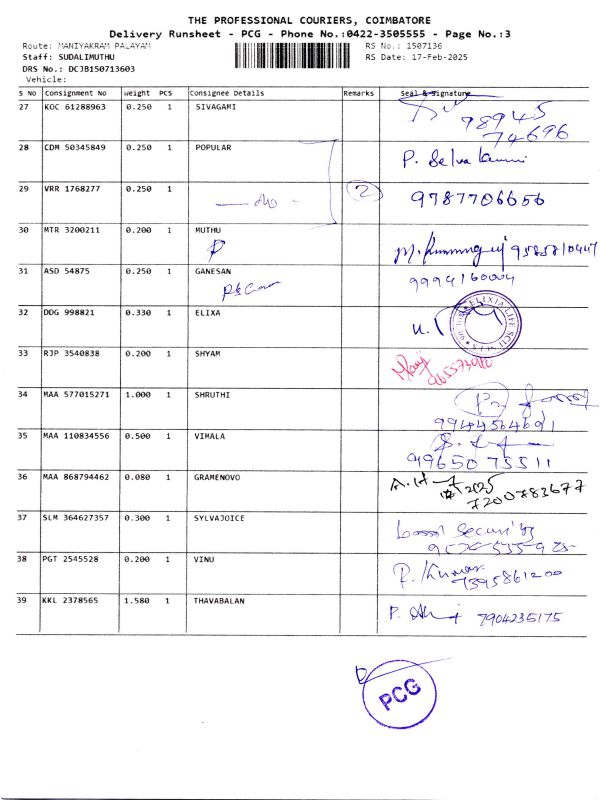 THE PROFESSIONAL COURIERS, COIMBATORE
Delivery Runsheet - PCG - Phone No.:0422-3505555 - Page No.:3
Route: MANIYAKRAM PALAYAM RS No.: 1507136
Staff: SUDALIMUTHU RS Date: 17-Feb-2025
DRS No.: DCJB150713603
Vehicle:
S No Consignment No weight PCS Consignee Details Remarks Seal & Signature
27 KOC 61288963 0.250 1 SIVAGAMI 98945
74696
28 CDM 50345849 0.250 1 POPULAR P. Selva
29 VRR 1768277 0.250 1 2 9787706656
30 MTR 3200211 0.200 1 MUTHU M.
31 ASD 54875 0.250 1 GANESAN 9994160004
32 DDG 998821 0.330 1 ELIXA ELIXIA LIFE
33 RJP 3540838 0.200 1 SHYAM
34 MAA 577015271 1.000 1 SHRUTHI
35 MAA 110834556 0.500 1 VIMALA 9965075511
36 MAA 868794462 0.080 1 GRAMENOVO 7200783677
37 SLM 364627357 0.300 1 SYLVAJOICE Security
38 PGT 2545528 0.200 1 VINU P. Kumar
7395861200
39 KKL 2378565 1.580 1 THAVABALAN P. 7904235175
PCG